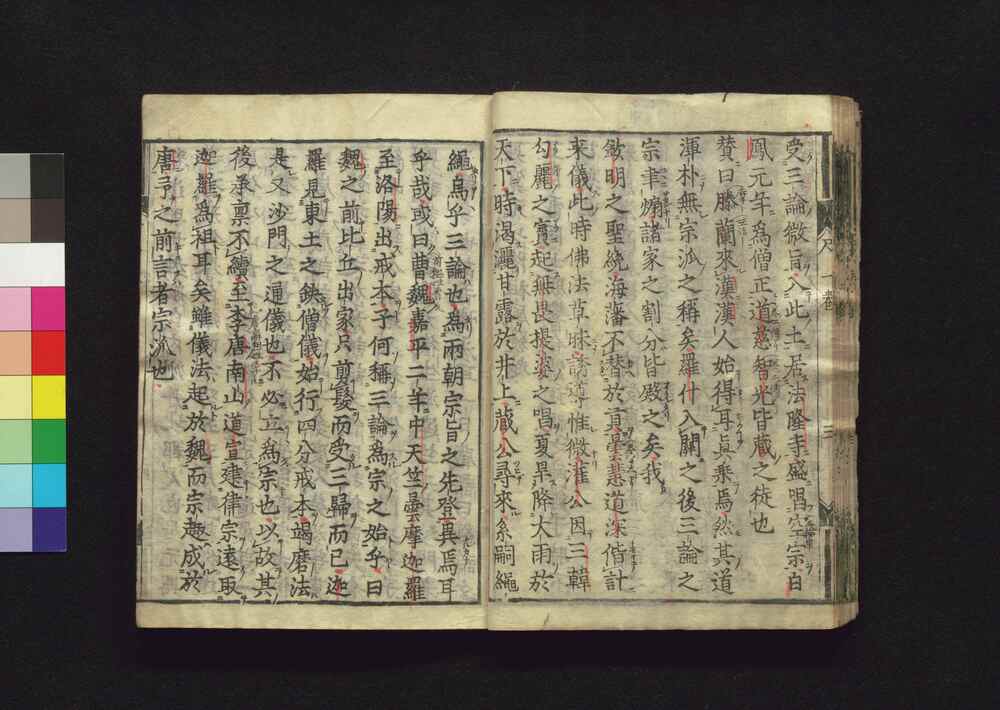 受三論微旨入此土居法隆寺盛唱空宗白
鳳元年為僧正道慈智光皆藏之徒也
賛曰騰蘭來漢漢人始得耳眞乘焉然其道
渾朴無宗派之稱矣羅什入關之後三論之
宗聿煽諸家之割分皆殿之矣我
敏明之聖統海藩不替於貢曇慧道深偕計
來儀此時佛法草昧誘導惟微灌公因三韓
勾麗之賓起無畏提婆之唱夏旱降大雨於
天下時渇灑甘露於井上藏公尋來系嗣繩
繩烏乎三論也為兩朝宗旨之先登異焉耳
乎哉或曰曹魏嘉平二年中天竺曇摩迦羅
至洛陽出戒本子何稱三論為宗之始乎曰
魏之前比丘出家只剪髮而受三歸而已迦
羅見東土之缺僧儀始行四分戒本羯磨法
是又沙門之通儀也不必立為宗也以故其
後承稟不續至李唐南山道宣建律宗遠取
迦羅為祖耳矣雖儀法起於魏而宗趣成於
唐予之前言者宗派也